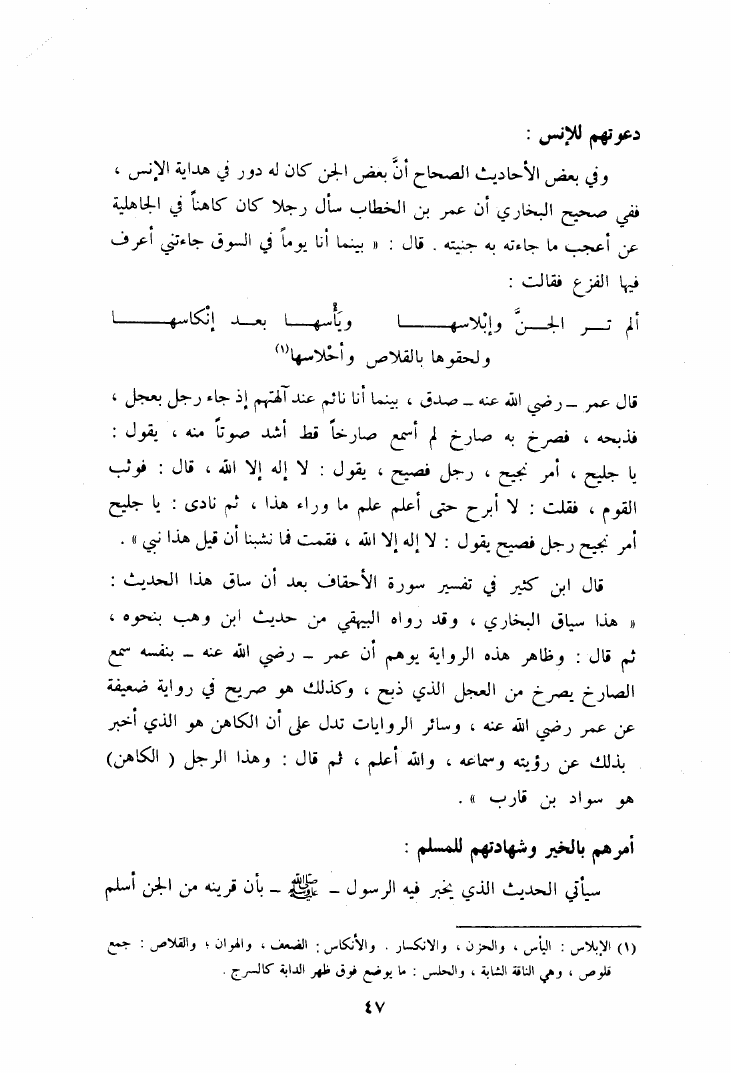 دعوتهم للإنس :
وفي بعض الأحاديث الصحاح أنَّ بعض الجن كان له دور في هداية الإنس ،
ففي صحيح البخاري أن عمر بن الخطاب سأل رجلا كان كاهناً في الجاهلية
عن أعجب ما جاءته به جنيته . قال : « بينما أنا يوماً في السوق جاءتني أعرف
فيها الفزع فقالت :
ألم تــر الجـنَّ وإبْلاسهـــا ويَأْسهـا بعـد إنْكاسهـــا
ولحقوها بالقلاص وأحْلاسها(١)
قال عمر ــ رضي الله عنه ــ صدق ، بينما أنا نائم عند آلهتهم إذ جاء رجل بعجل ،
فذبحه ، فصرخ به صارخ لم أسمع صارخاً قط أشد صوتاً منه ، يقول :
يا جليح ، أمر نجيح ، رجل فصيح ، يقول : لا إله إلا الله ، قال : فوثب
القوم ، فقلت : لا أبرح حتى أعلم علم ما وراء هذا ، ثم نادى : يا جليح
أمر نجيح رجل فصيح يقول : لا إله إلا الله ، فقمت فما نشبنا أن قيل هذا نبي » .
قال ابن كثير في تفسير سورة الأحقاف بعد أن ساق هذا الحديث :
« هذا سياق البخاري ، وقد رواه البيهقي من حديث ابن وهب بنحوه ،
ثم قال : وظاهر هذه الرواية يوهم أن عمر ــ رضي الله عنه ــ بنفسه سمع
الصارخ يصرخ من العجل الذي ذبح ، وكذلك هو صريح في رواية ضعيفة
عن عمر رضي الله عنه ، وسائر الروايات تدل على أن الكاهن هو الذي أخبر
بذلك عن رؤيته وسماعه ، والله أعلم ، ثم قال : وهذا الرجل ( الكاهن)
هو سواد بن قارب » .
أمرهم بالخير وشهادتهم للمسلم :
سيأتي الحديث الذي يخبر فيه الرسول ــ ﷺ ــ بأن قرينه من الجن أسلم
(١) الإبلاس : اليأس ، والحزن ، والانكسار . والأنكاس : الضعف ، والهوان ؛ والقلاص : جمع
قلوص ، وهي الناقة الشابة ، والحلس : ما يوضع فوق ظهر الدابة كالسرج .
٤٧